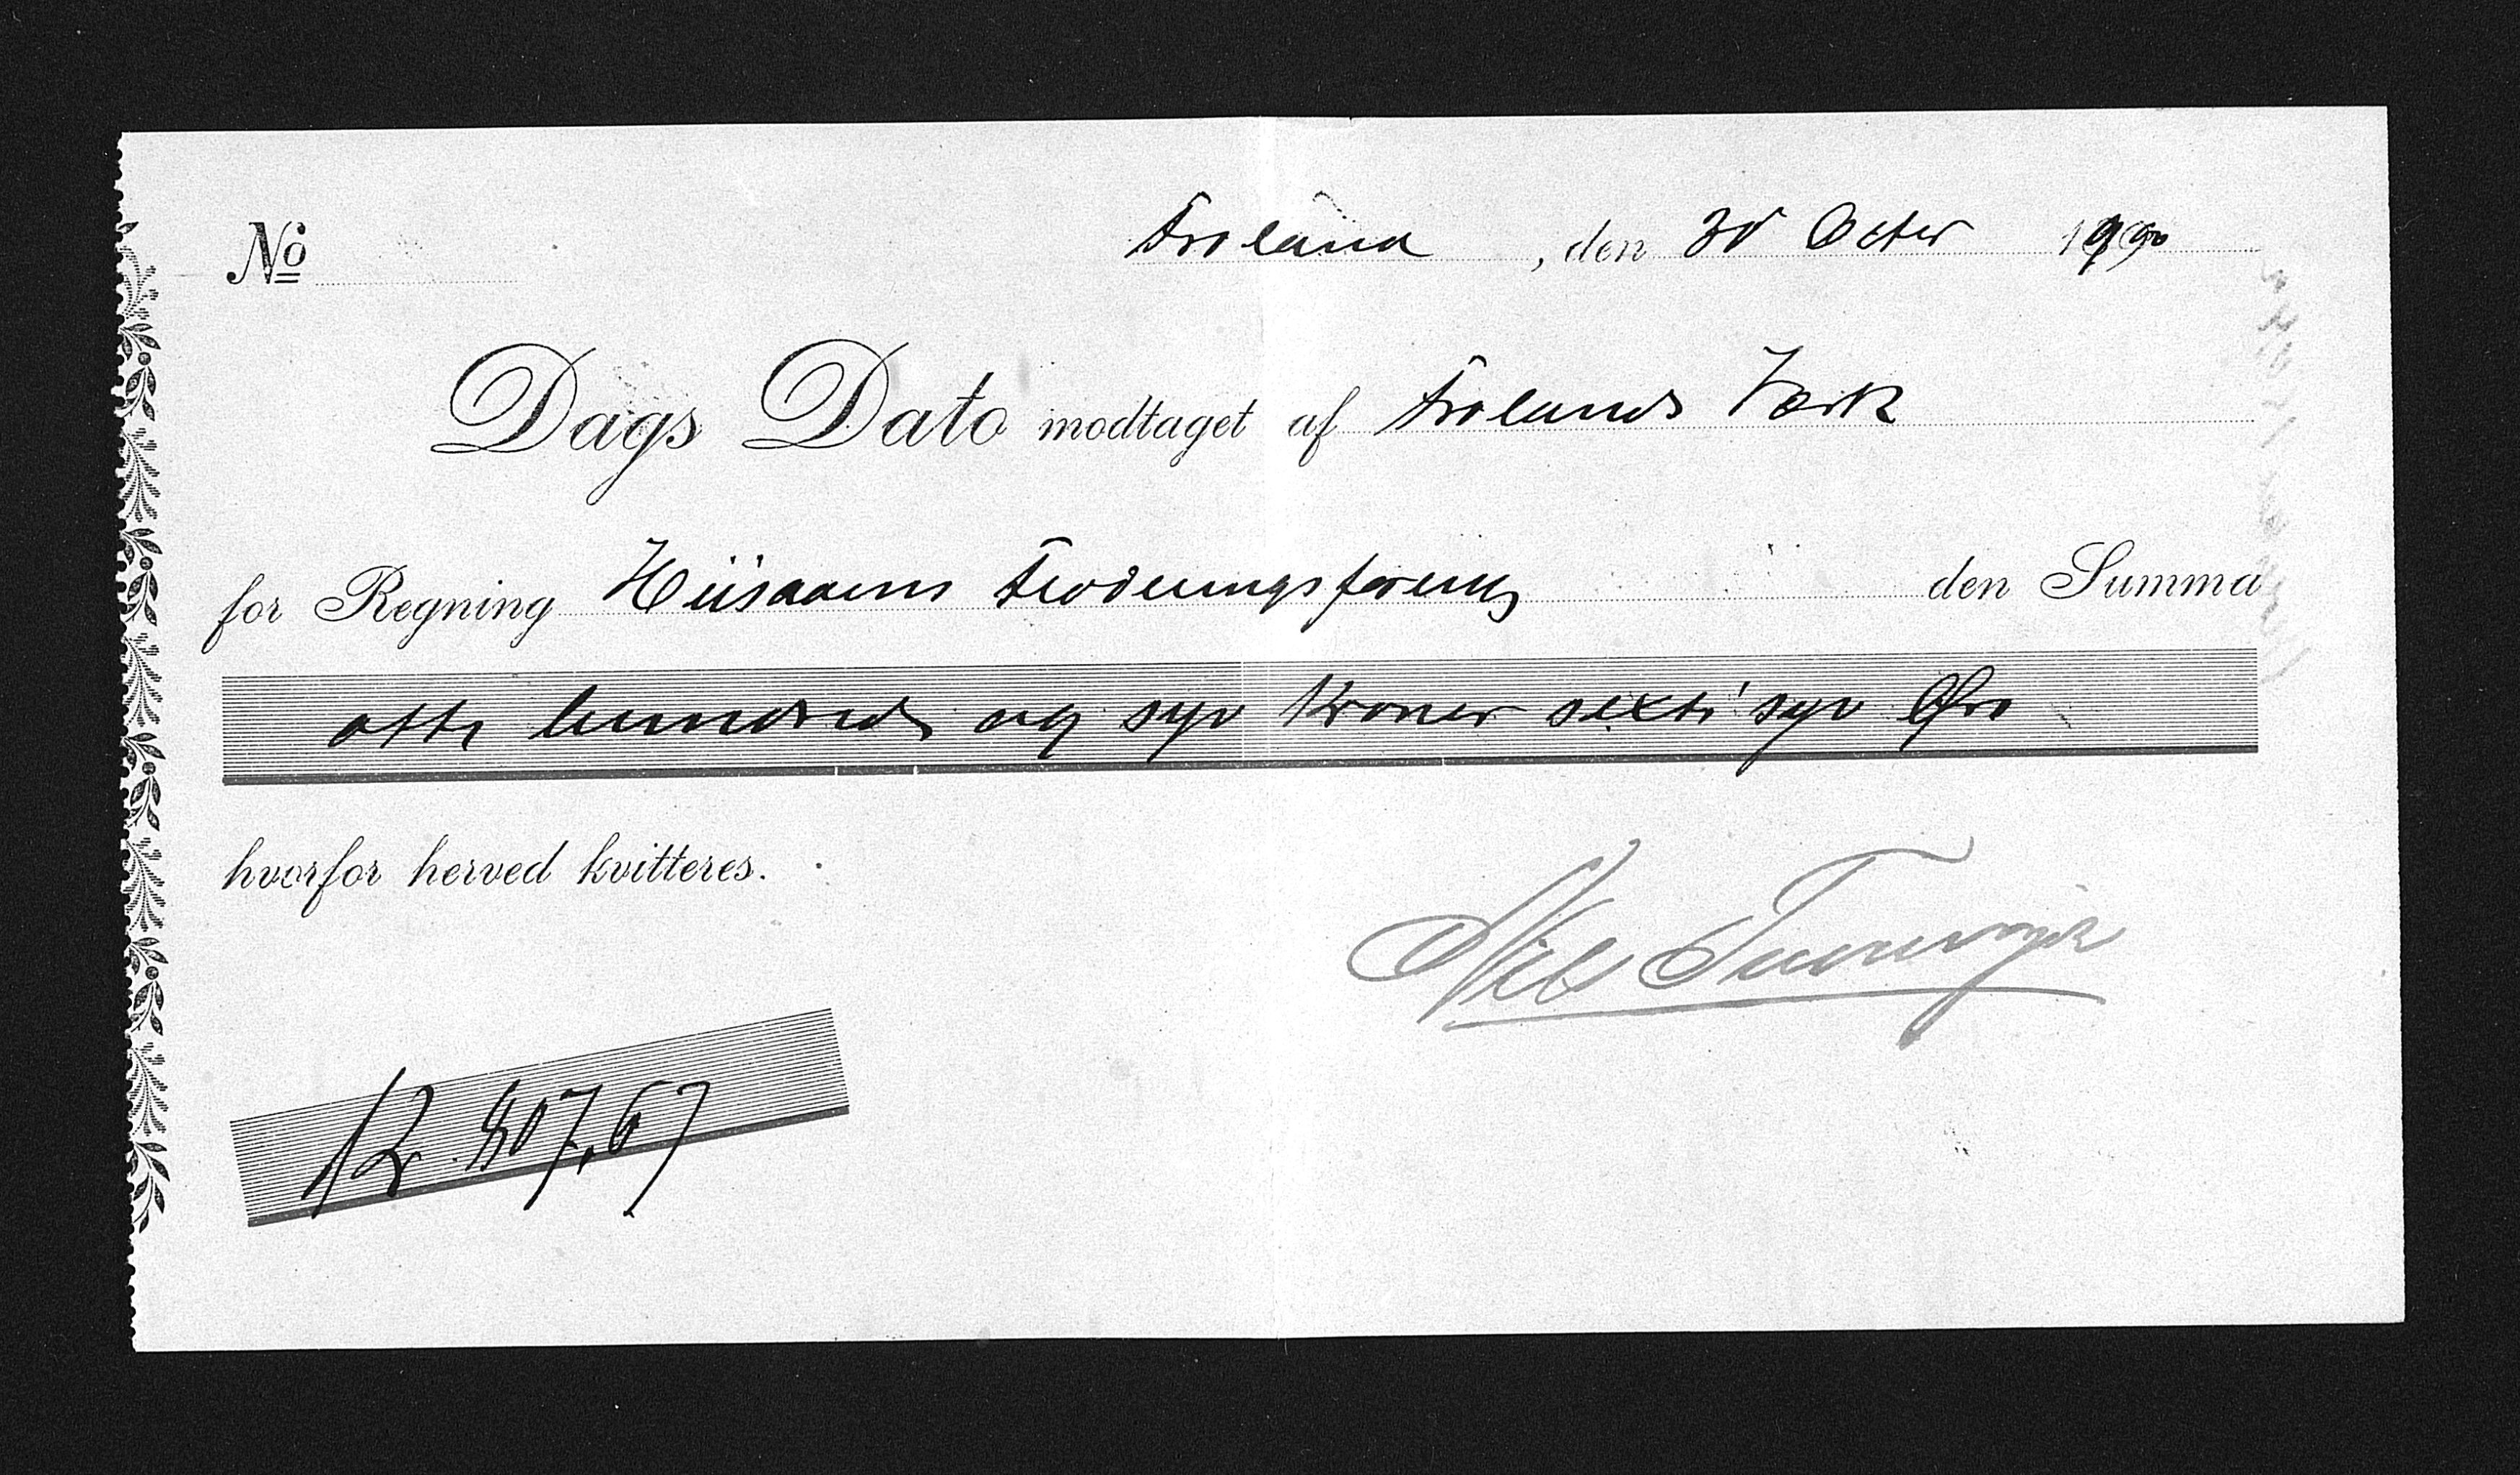 No Froland , den 30 Octer 1990
Dags Dato modtaget af Frolands Værk
for Regning Hiisaaens Flødningsforening den Summa
otte hundrede og syv Kroner sexti syv Øre
hvorfor herved kvitteres.
Nils
Kr. 807,67